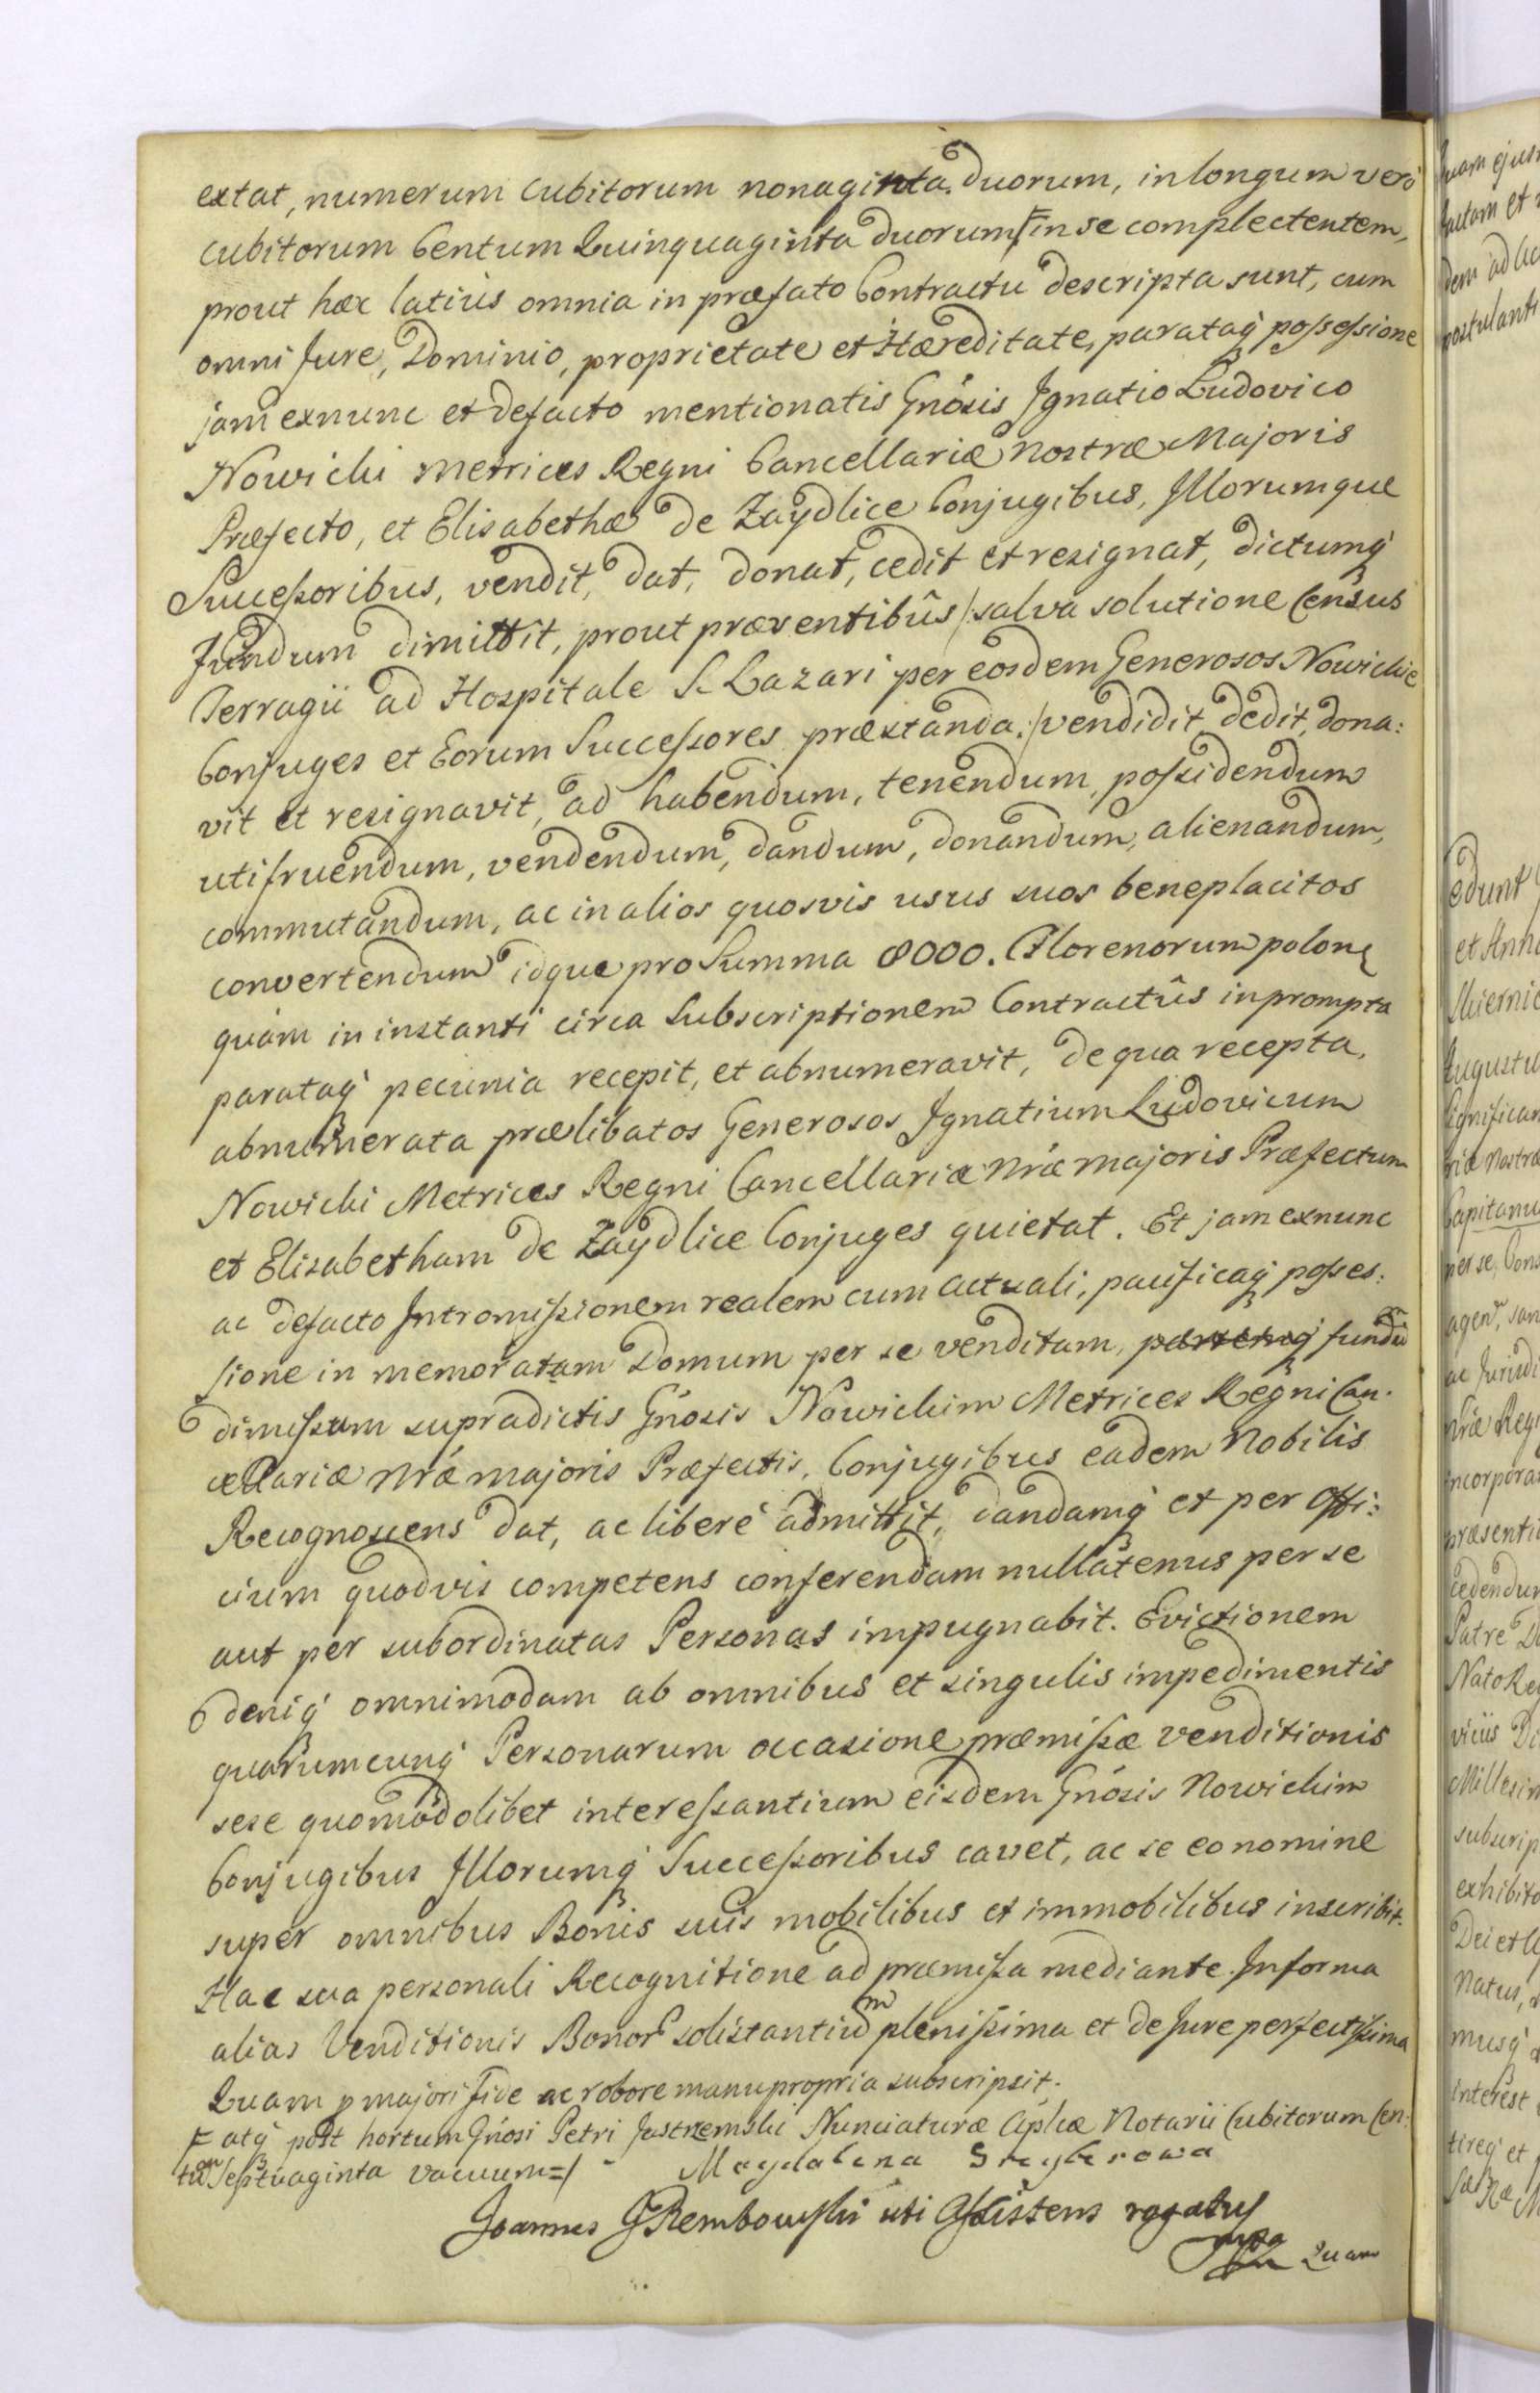 extat, numerum Cubitorum nonaginta duorum, in longum verò
Cubitorum Centum Quinquaginta duorum F in se complectentem,
prout hæc latius omnia in præfato Contractu descripta sunt, cum
omni Jure, Dominio, proprietate et Hæreditate, parataq possessione
jam exnunc et defacto mentionatis Gnósis Ignatio Ludovico
Nowicki Metrices Regni Cancellariæ Nostræ Majoris
Præfecto, et Elisabethæ de Zaydlice Conjugibus, Illorumque
Successoribus, vendit, dat, donat, cedit et resignat, dictumq
Fundum dimittit, prout præsentibûs /: salva solutione Census
Terragii ad Hospitale S. Lazari per eosdem Generosos Nowickie
Conjuges et Eorum Successores præstanda :/ vendidit, dedit, dona:
vit et resignavit, ad habendum, tenendum, possidendum
utifruendum, vendendum, dandum, donandum, alienandum,
commutandum, ac in alios quosvis usus suos beneplacitos
convertendum idque pro Summa 8000. Florenorum polon
quàm in instanti circa Subscriptionem Contractûs in prompta
parataq pecunia recepit, et abnumeravit, de qua recepta,
abnumerata prælibatos Generosos Ignatium Ludovicum
Nowicki Metrices Regni Cancellariæ Nrǽ majoris Præfectum
et Elisabetham de Zaydlice Conjuges quietat. Et jam exnunc
ac defacto Intromissionem realem cum actuali, pacificaq posses:
sione in memoratam Domum per se venditam, partemq fundum
dimissum supradictis Gnósis Nowickim Metrices Regni Can:
cellariæ Nrǽ majoris Præfectis, Conjugibus eadem Nobilis
Recognoscens dat, ac liberè admittit, dandamq et per Offi:
cium quodvis competens conferendam nullatenus per se
aut per subordinatas Personas impugnabit. Evictionem
deniq omnimodam ab omnibus et singulis impedimentis
quarumcunq Personarum occasione præmissæ venditionis
sese quomodolibet interessantium eisdem Gnósis Nowickim
Conjugibus Illorumq Successoribus cavet, ac se eo nomine
super omnibus Bonis suis mobilibus et immobilibus inscribit.
Hac sua personali Recognitione ad præmissa mediante. In forma
alias Venditionis Bonor solistantium plenissima et de Jure perfectissima
Quam p majori fide ac robore manu propria subscripsit.
F atq post hortum Gnósi Petri Jastrzemski Nunciaturæ Aplicæ Notarii Cubitorum Cen:
tum Septuaginta vacuum =/
Magdalena Sreyberowa
Joannes G Rembowski uti Assistens rogatus
mpa
Quam